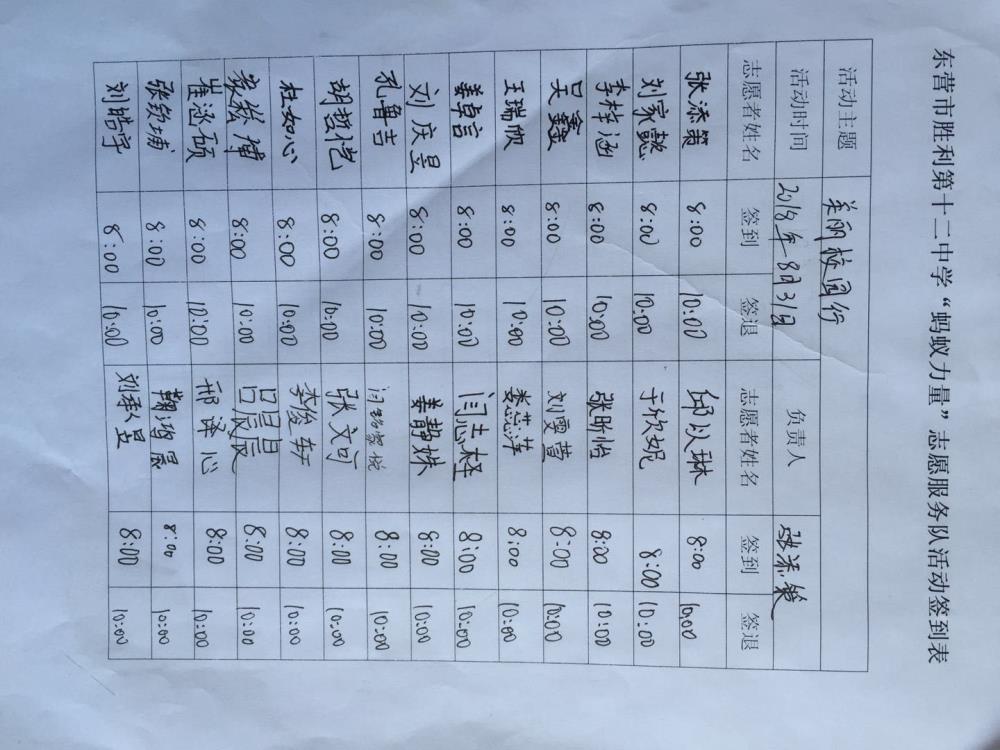 东营市胜利第十二中学“蚂蚁力量”志愿服务队活动签到表
活动主题 美丽校园行
活动时间 2018年8月31日 负责人 张添策
志愿者姓名 签到 签退 志愿者姓名 签到 签退
张添策 8:00 10:00 邱以琳 8:00 10:00
刘家懿 8:00 10:00 于欣妮 8:00 10:00
李梓涵 8:00 10:00 张昕怡 8:00 10:00
吴鑫 8:00 10:00 刘雯萱 8:00 10:00
王瑞欣 8:00 10:00 娄蕊萍 8:00 10:00
姜卓言 8:00 10:00 闫志梓 8:00 10:00
刘庆昱 8:00 10:00 姜静姝 8:00 10:00
孔鲁吉 8:00 10:00 8:00 10:00
胡哲恺 8:00 10:00 张文可 8:00 10:00
杜如心 8:00 10:00 李俊轩 8:00 10:00
8:00 10:00 吕晨晨 8:00 10:00
崔涵硕 8:00 10:00 邢泽心 8:00 10:00
张钦埔 8:00 10:00 鞠鸿晟 8:00 10:00
刘皓宇 8:00 10:00 刘秉昱 8:00 10:00